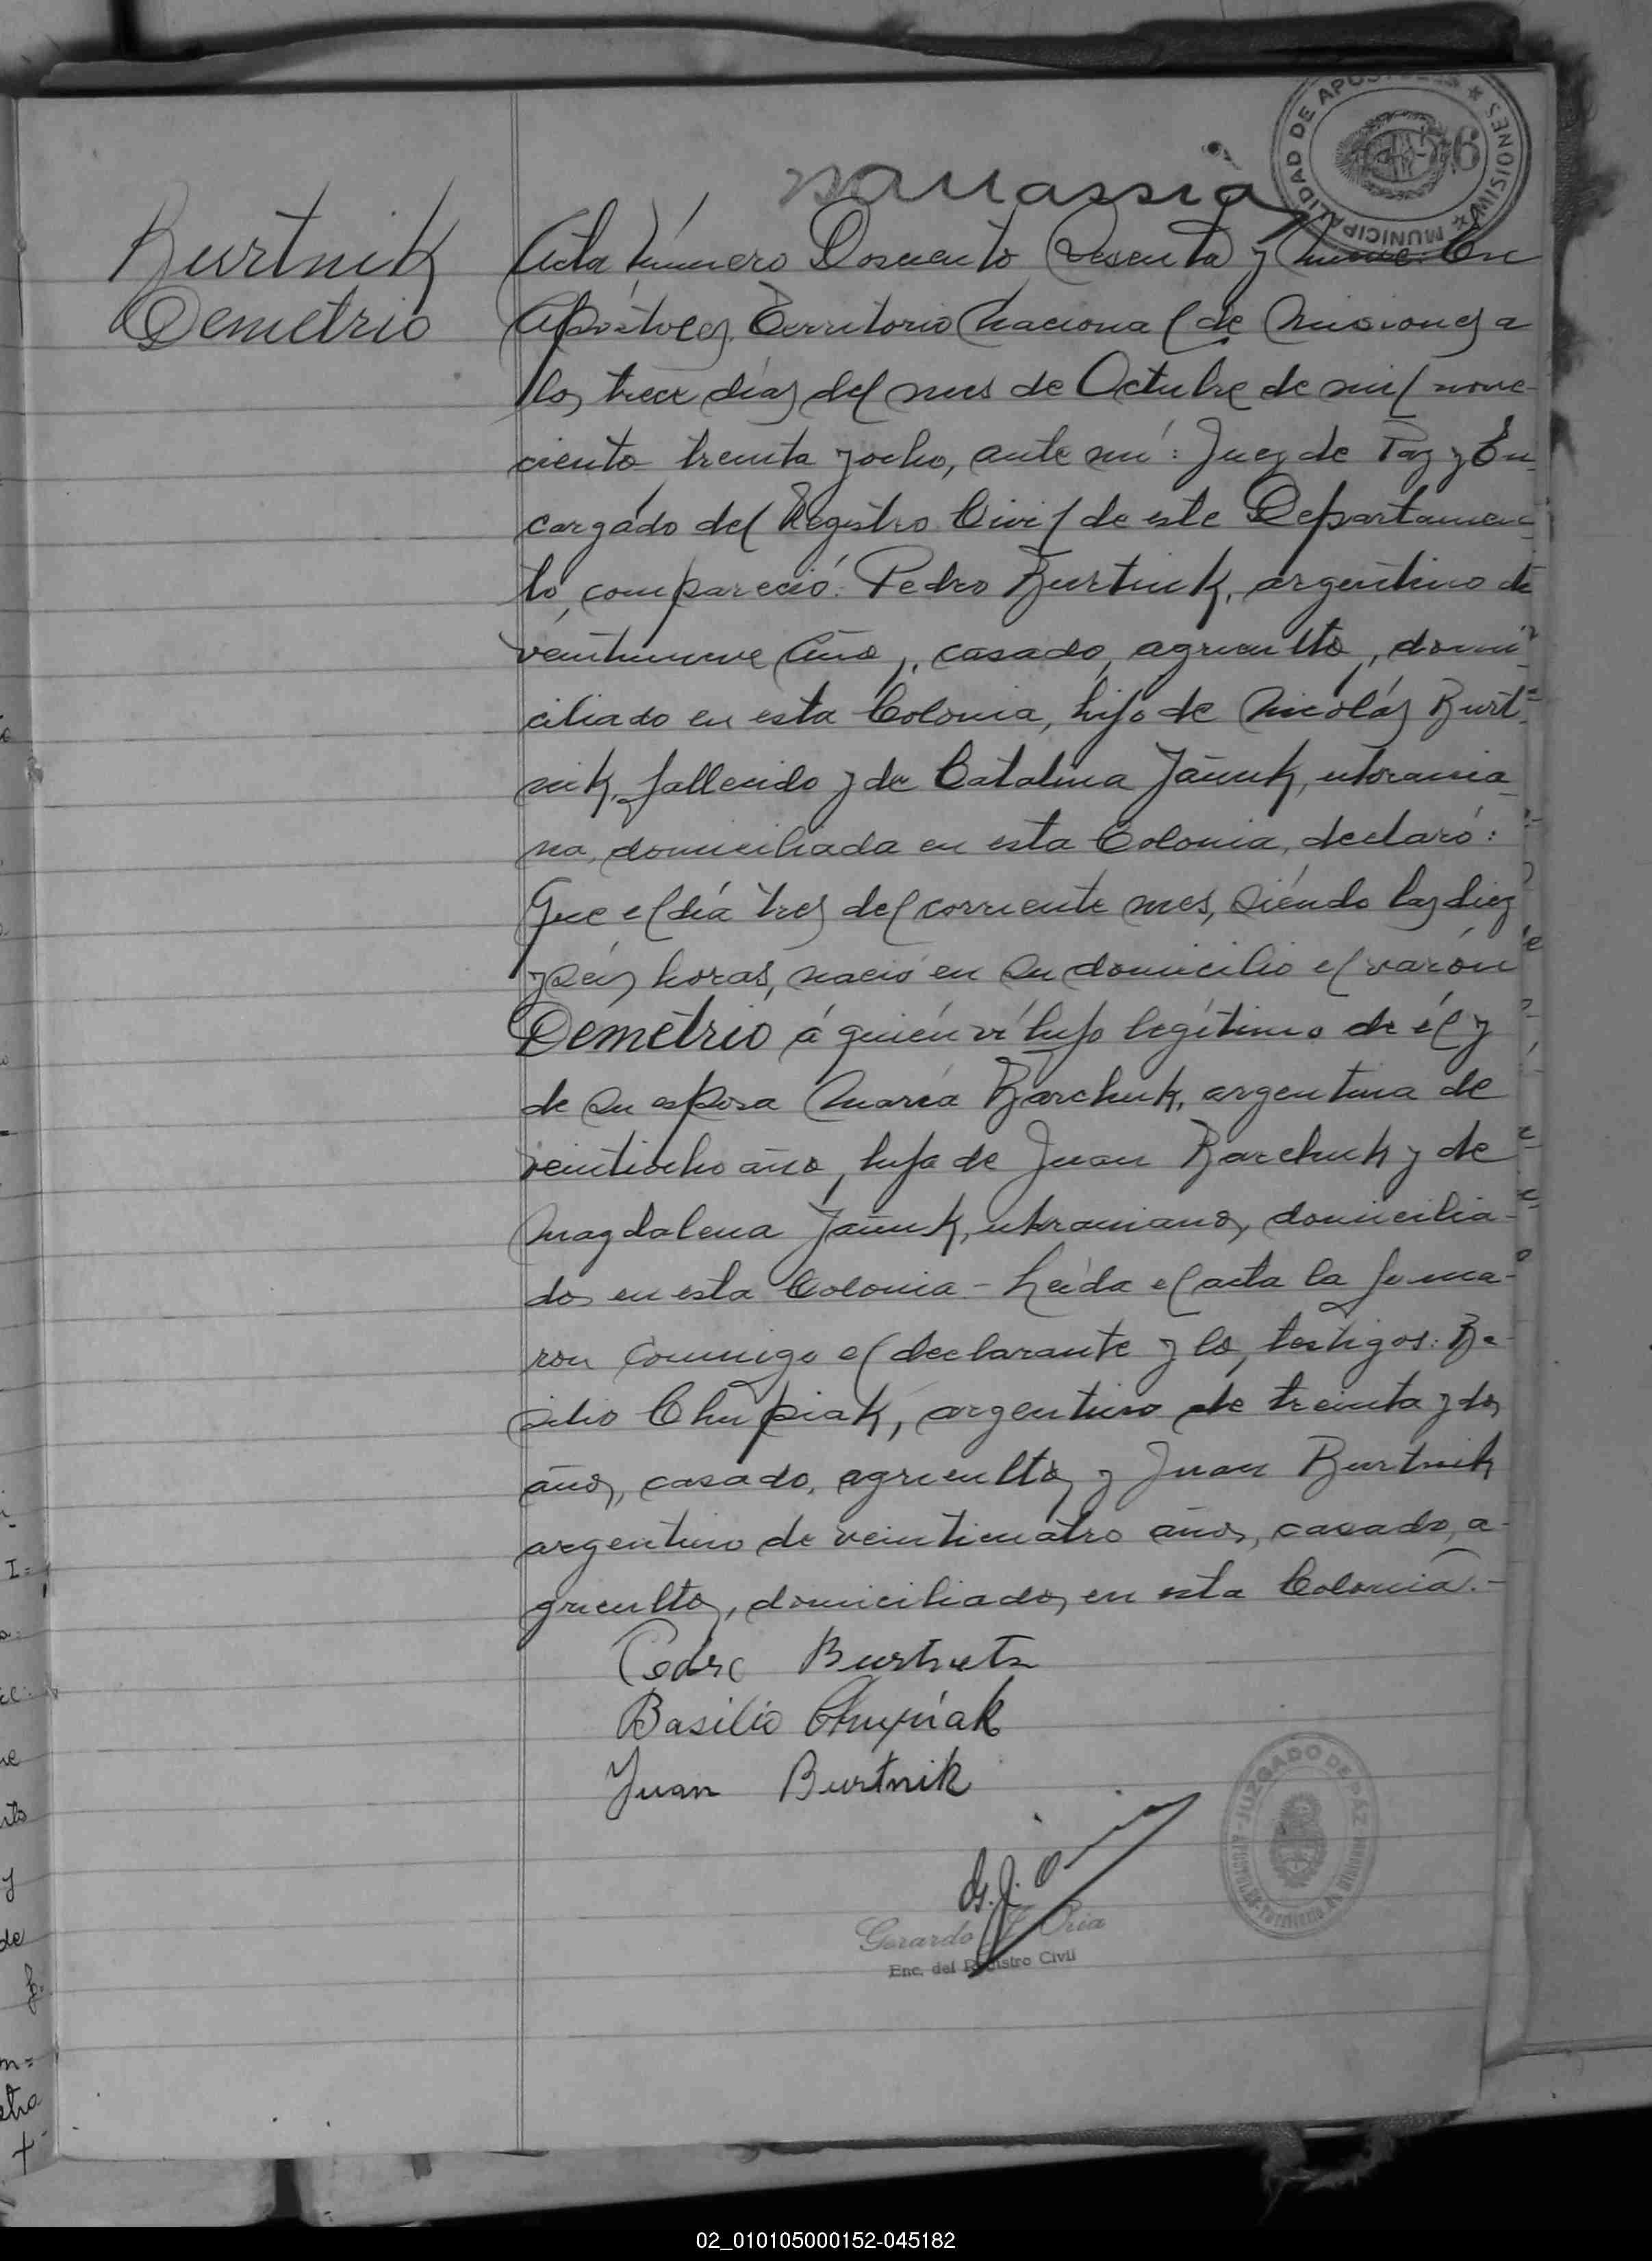 MUNICIPALIDAD DE APOSTOLES
MISIONES
56
Burtnik
Demetrio
Acta número Dosciento Sesenta y nueve. En
Apóstoles, Territorio Nacional de Misiones a
los trece días del mes de Octubre de mil nove-
ciento treinta y ocho, ante mí: Juez de Paz y En-
cargado del Registro Civil de este Departamen-
to, compareció: Pedro Burtnik, argentino de
veintinueve años, casado, agricultor, domi-
ciliado en esta Colonia, hijo de Nicolás Burt-
nik, fallecido y de Catalina Jañuk, ukrania-
na, domiciliada en esta Colonia, declaró:
Que el día tres del corriente mes, siéndo las diez
y seis horas, nació en su domicilio el varón
Demetrio á quién ví hijo legítimo de él y
de su esposa María Barchuk, argentina de
veintiocho años, hija de Juan Barchuk y de
Magdalena Jañuk, ukranianos, domicilia-
dos en esta Colonia - Leída el acta la firma-
ron conmigo el declarante y los testigos: Ba-
silio Chupiak, argentino de treinta y dos
años, casado, agricultor y Juan Burtnik
argentino de veinticuatro años, casado, a-
gricultor, domiciliados en esta Colonia.-
Pedro Burtnik
Basilio Chupiak
Juan Burtnik
JUZGADO DE PAZ
Gerardo J. Oria
Enc. del Registro Civil
02_010105000152-045182